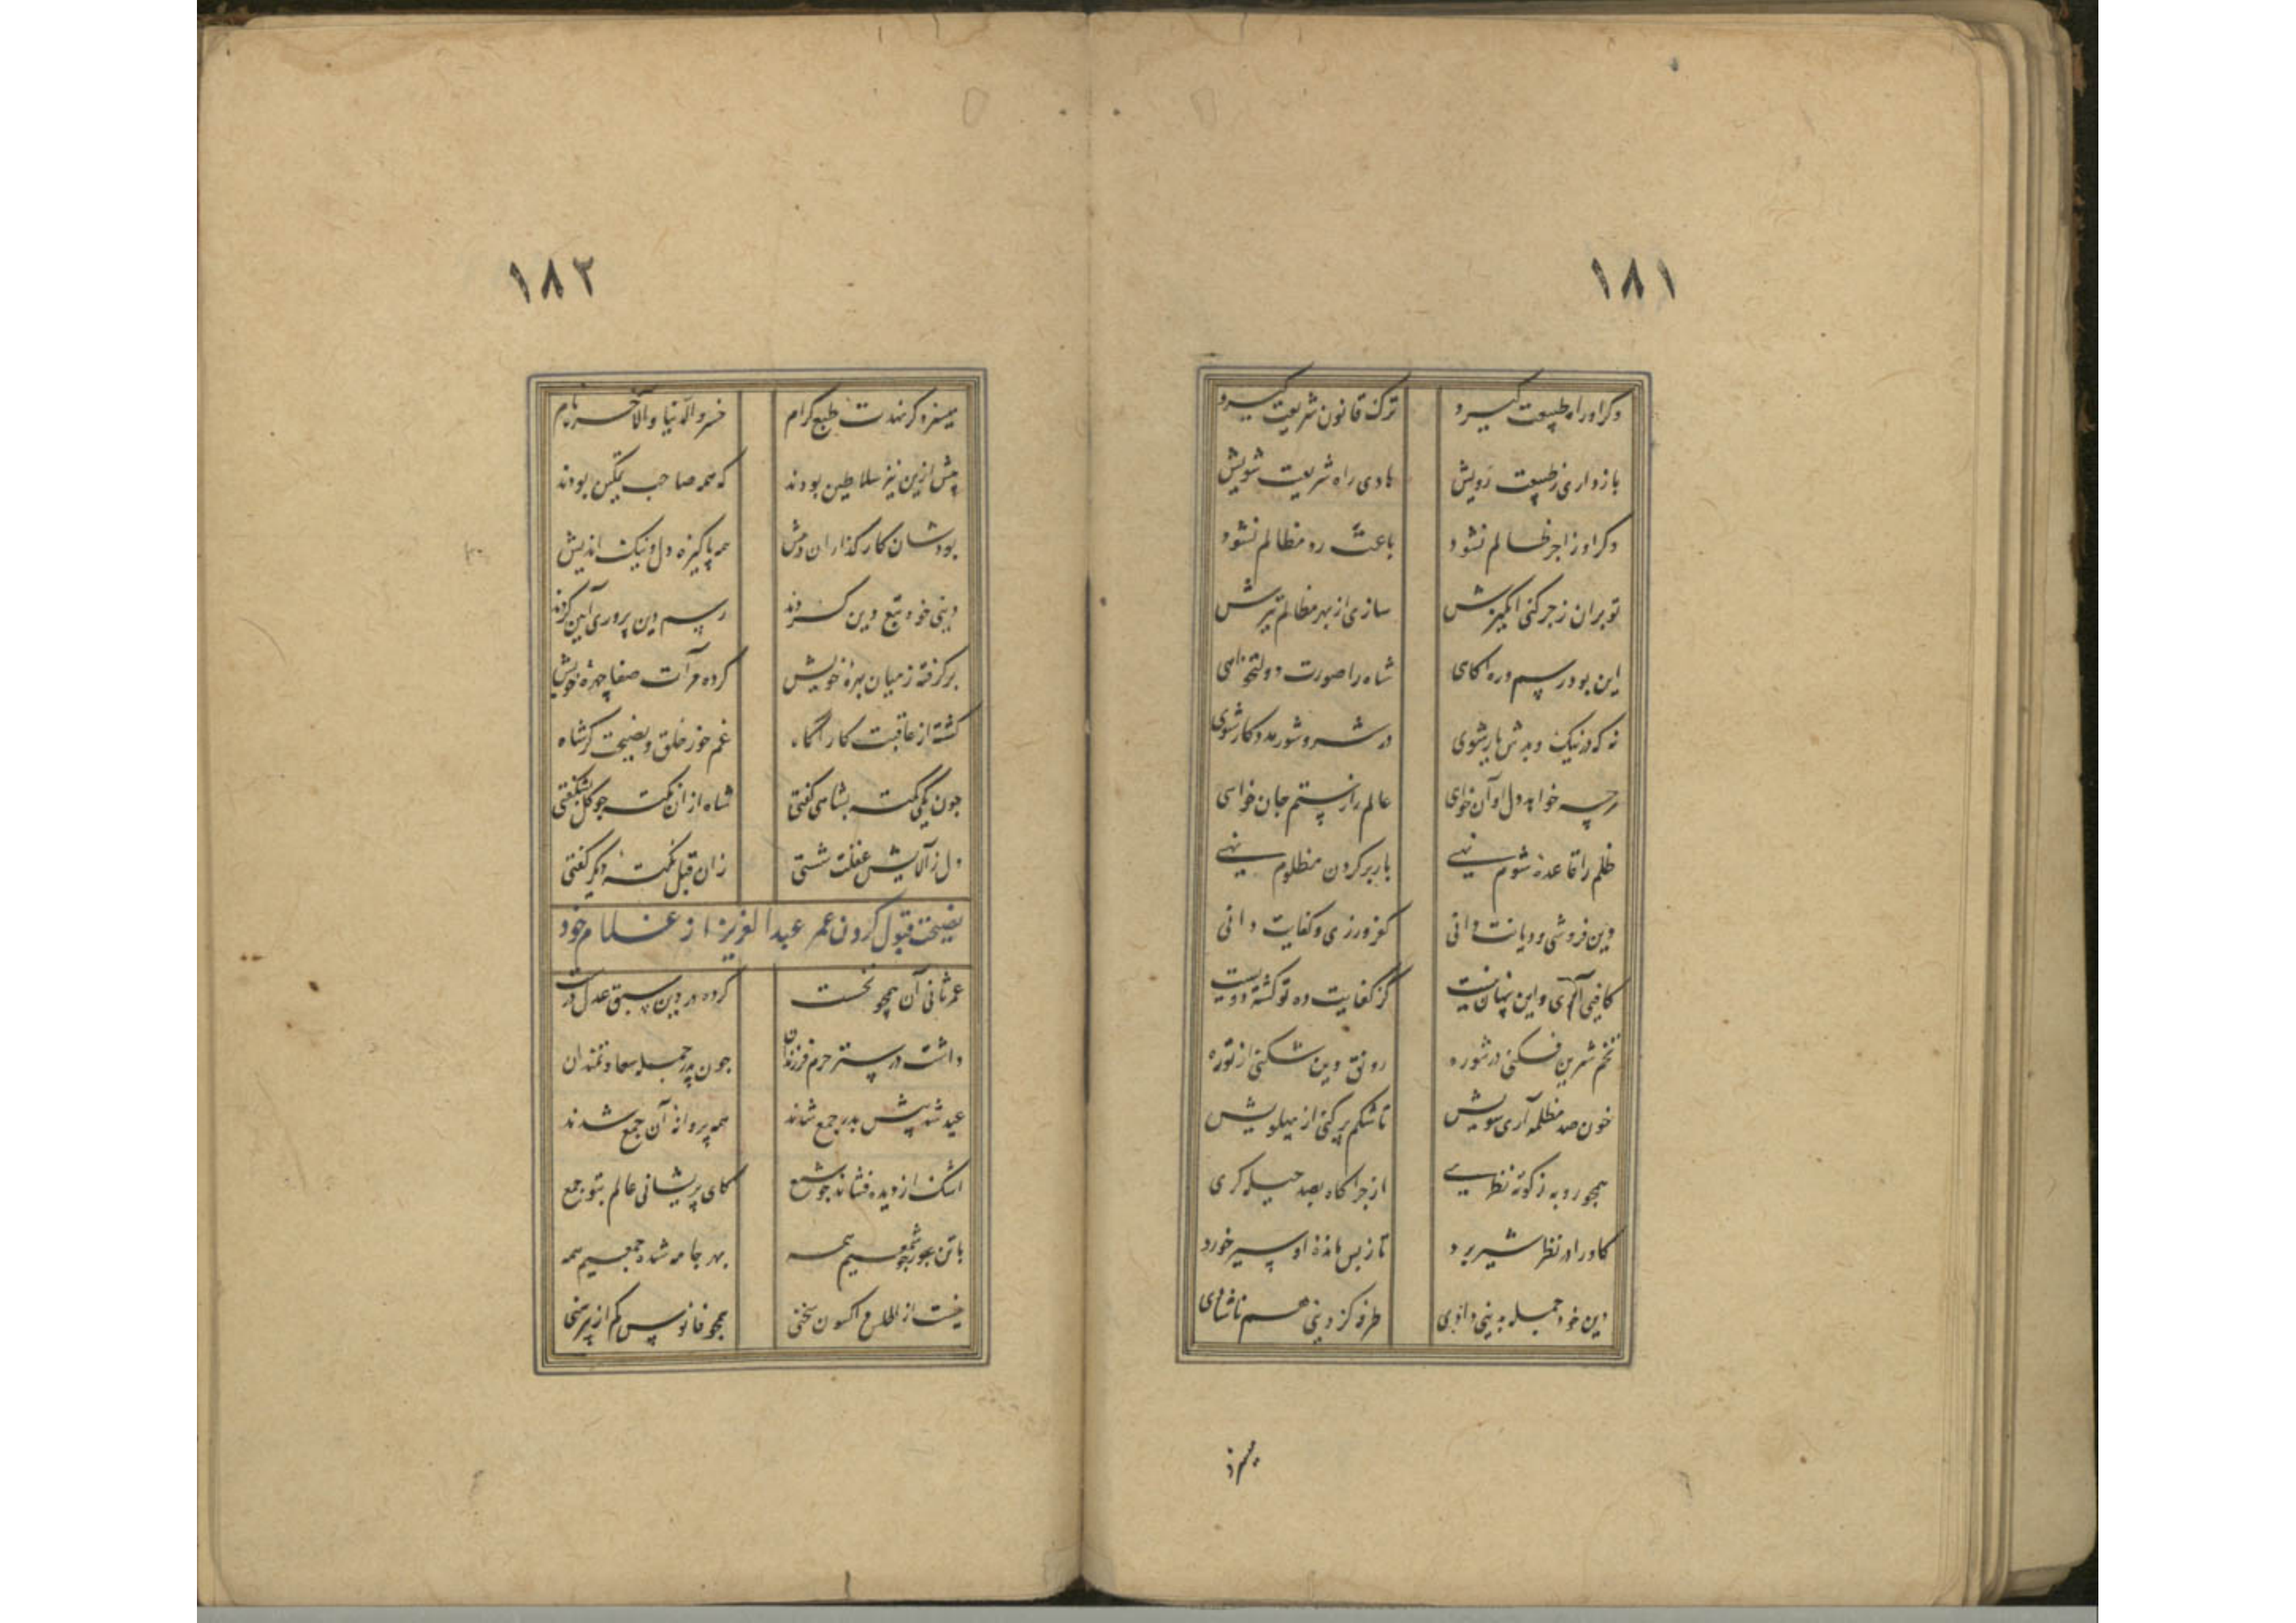 ۱۸۱
وکر او راه طبیعت کیرد ترک قانون شریعت کیرد
بازداری ز طبیعت رویش هادی راه شریعت شویش
وکر او زاجر ظالم نشود باعث رد مظالم نشود
تو بران زجر کنی انکیزش سازی از بهر مظالم تیزش
این بود رسم و ره اکاهی شاه را صورت دولتخواهی
نه که در نیک و بدش یار شوی در شر و شور مددکار شوی
هرچه خواهد دل او آن خواهی عالم از ستم جان خواهی
ظلم را قاعده شوم نهی بار بر کردن مظلوم نهی
دین فروشی و دیانت دانی کفر ورزی و کفایت دانی
کافیی آری و این پنهان نیست کز کفایت ده تو کشته دویست
تخم شر بن فکنی در شوره رونق دین شکنی از توره
خون صد مظلمه آری سویش تا شکم پر کنی از پهلویش
همچو روبه ز کوته نظری از چراگاه بصد حیله کری
کاو را در نظر شیر برد تا ز پس مانده او سیر خورد
دین خود جمله به بی دادی طرفه کز دینی هم ناشادی
میسزد
۱۸۲
میسزد کر نهدت طبع کرام خسر الدنیا والآخره نام
پیش ازین نیز سلاطین بودند که همه صاحب تمکین بودند
بودشان کار کذاران در پیش همه پاکیزه دل و نیک اندیش
دینی خود تبع دین کردند رسم دین پروری آیین کردند
برکرفته ز میان بهرهٔ خویش کرده مرآت صفا چهرهٔ خویش
کشته از عاقبت کار آگاه غم خور خلق و نصیحت کر شاه
چون یکی نکته بشاهی کفتی شاه از ان نکته چو کل بشکفتی
دل ز آلایش غفلت شستی زان قبل نکتهٔ دیکر کفتی
نصیحت قبول کردن عمر عبدالعزیز از غلام خود
عمر ثانی آن همچو نخست کرده در دین سبق عدل درست
داشت در ستر حرم فرزندان چون پدر جمله سعادتمندان
عید شد پیش پدر جمع شدند همه پروانه آن جمع شدند
اشک از دیده فشاند چو شمع کای پریشانی عالم بتو جمع
با تن عور چو شمعیم همه بهر جامه شده جمعیم همه
نیست از اطلس و اکسون سخنی همچو فانوس کم از پیرهنی